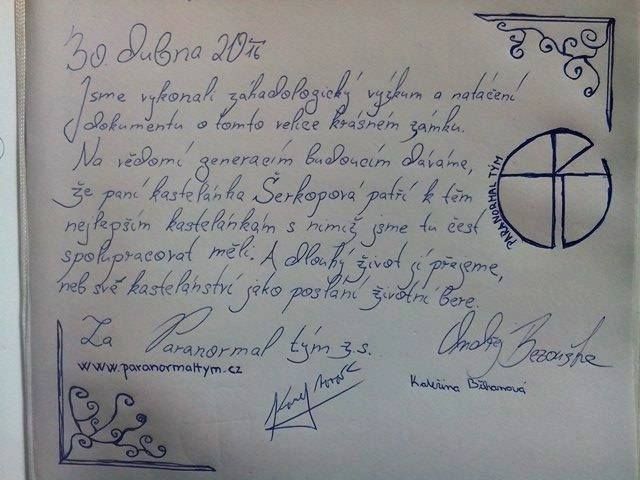 30. dubna 2016
Jsme vykonali záhadologický výzkum a natáčení
dokumentu o tomto velice krásném zámku.
Na vědomí generacím budoucím dáváme,
že paní kastelánka Šerkopová patří k těm
nejlepším kastelánkám s nimiž jsme tu čest
spolupracovat měli. A dlouhý život jí přejeme,
neb své kastelánství jako poslání životní bere.
PARANORMAL TÝM
Za Paranormal tým z.s.
www.paranormaltym.cz
Ondřej
Kateřina